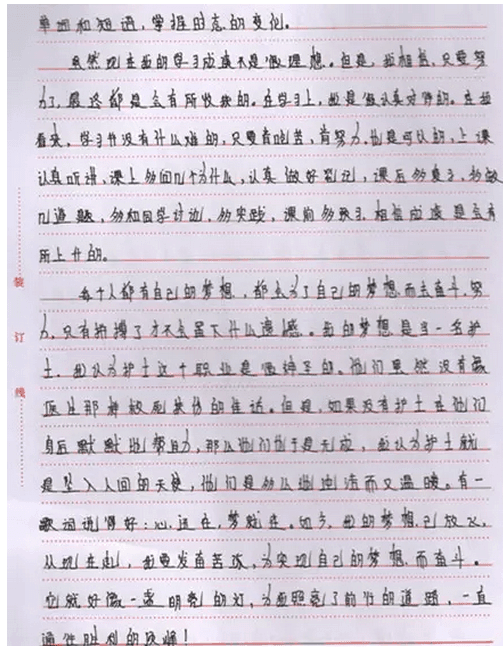 单词和短语，掌握时态的变化。
虽然现在我的学习成绩不是很理想。但是，我相信，只要努
力了，最终都是会有所收获的。在学习上，我是很认真对待的。在我
看来，学习并没有什么难的，只要肯吃苦，肯努力。也是可以的，上课
认真听讲，课上多问几个为什么，认真做好笔记，课后多复习，多做
几道题，多和同学讨论，多实践，课前多预习，相信成绩是会有
所上升的。
每个人都有自己的梦想，都会为了自己的梦想而去奋斗，努
力，只有拼搏了才不会留下什么遗憾。我的梦想是当一名护
士，我认为护士这个职业是很神圣的。他们虽然没有
医生那种救死扶伤的佳话。但是，如果没有护士在他们
身后默默地帮助，那么他们也于是无成，我认为护士就
是坠入人间的天使，他们是多么地纯洁而又温暖。有一
歌词说得好：心，还在，梦就在。如今，我的梦想已放飞，
从现在起，我要发奋苦读，为实现自己的梦想而奋斗。
它就好像一盏明亮的灯，为我照亮了前行的道路，一直
通往胜利的顶峰！
装
订
线